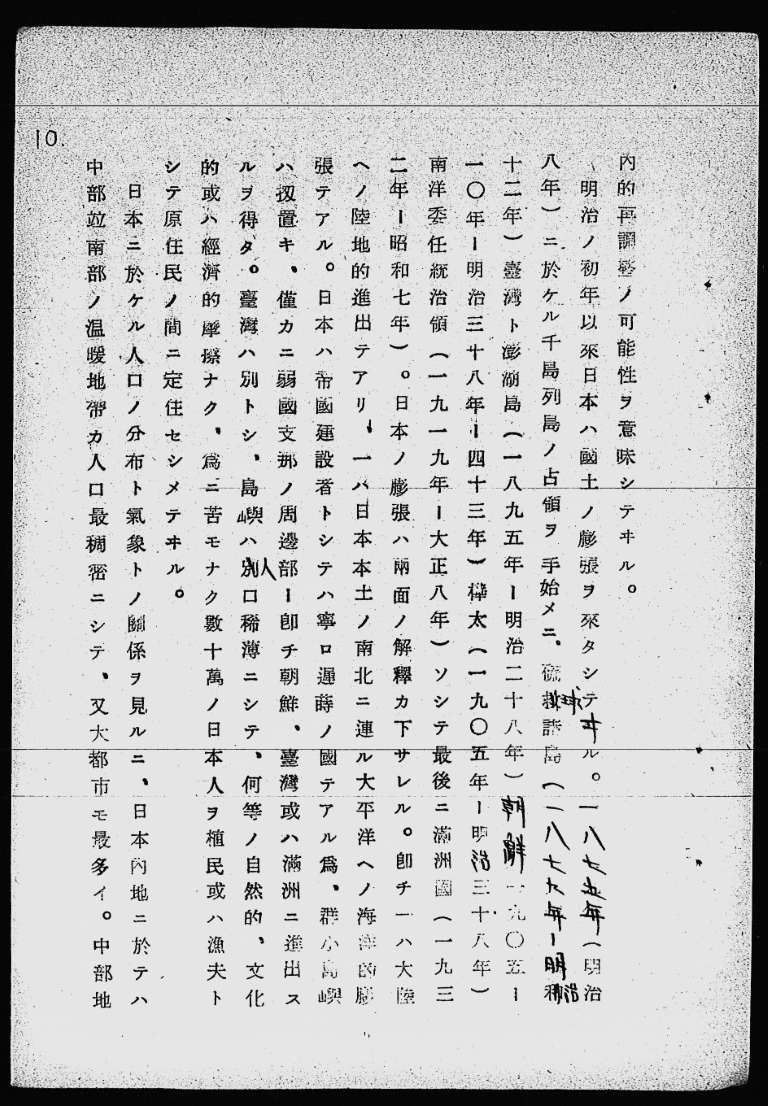 10.
內的再調整ノ可能性ヲ意味シテヰル。
明治ノ初年以來日本ハ國土ノ膨張ヲ來タシテヰル。一八七五年(明治
八年)ニ於ケル千島列島ノ占領ヲ手始メニ、硫球諸島(一八七九年ー明治
十二年)臺灣ト澎湖島(一八九五年ー明治二十八年)朝鮮一九〇五ー
一〇年ー明治三十八年ー四十三年)樺太(一九〇五年ー明治三十八年)
南洋委任統治領(一九一九年ー大正八年)ソシテ最後ニ滿洲國(一九三
二年ー昭和七年)。日本ノ膨張ハ兩面ノ解釋カ下サレル。卽チ一ハ大陸
ヘノ陸地的進出テアリ、一ハ日本本土ノ南北ニ連ル大平洋ヘノ海洋的膨
張テアル。日本ハ帝國建設者トシテハ寧ロ遲蒔ノ國テアル爲、群小島嶼
ハ扨置キ、僅カニ弱國支那ノ周邊部ー卽チ朝鮮、臺灣或ハ滿洲ニ進出ス
ルヲ得タ。臺灣ハ別トシ、島嶼ハ人口稀薄ニシテ、何等ノ自然的、文化
的或ハ經濟的摩擦ナク、爲ニ苦モナク數十萬ノ日本人ヲ植民或ハ漁夫ト
シテ原住民ノ間ニ定住セシメテヰル。
日本ニ於ケル人口ノ分布ト氣象トノ關係ヲ見ルニ、日本內地ニ於テハ
中部竝南部ノ溫暖地帶カ人口最稠密ニシテ、又大都市モ最多イ。中部地